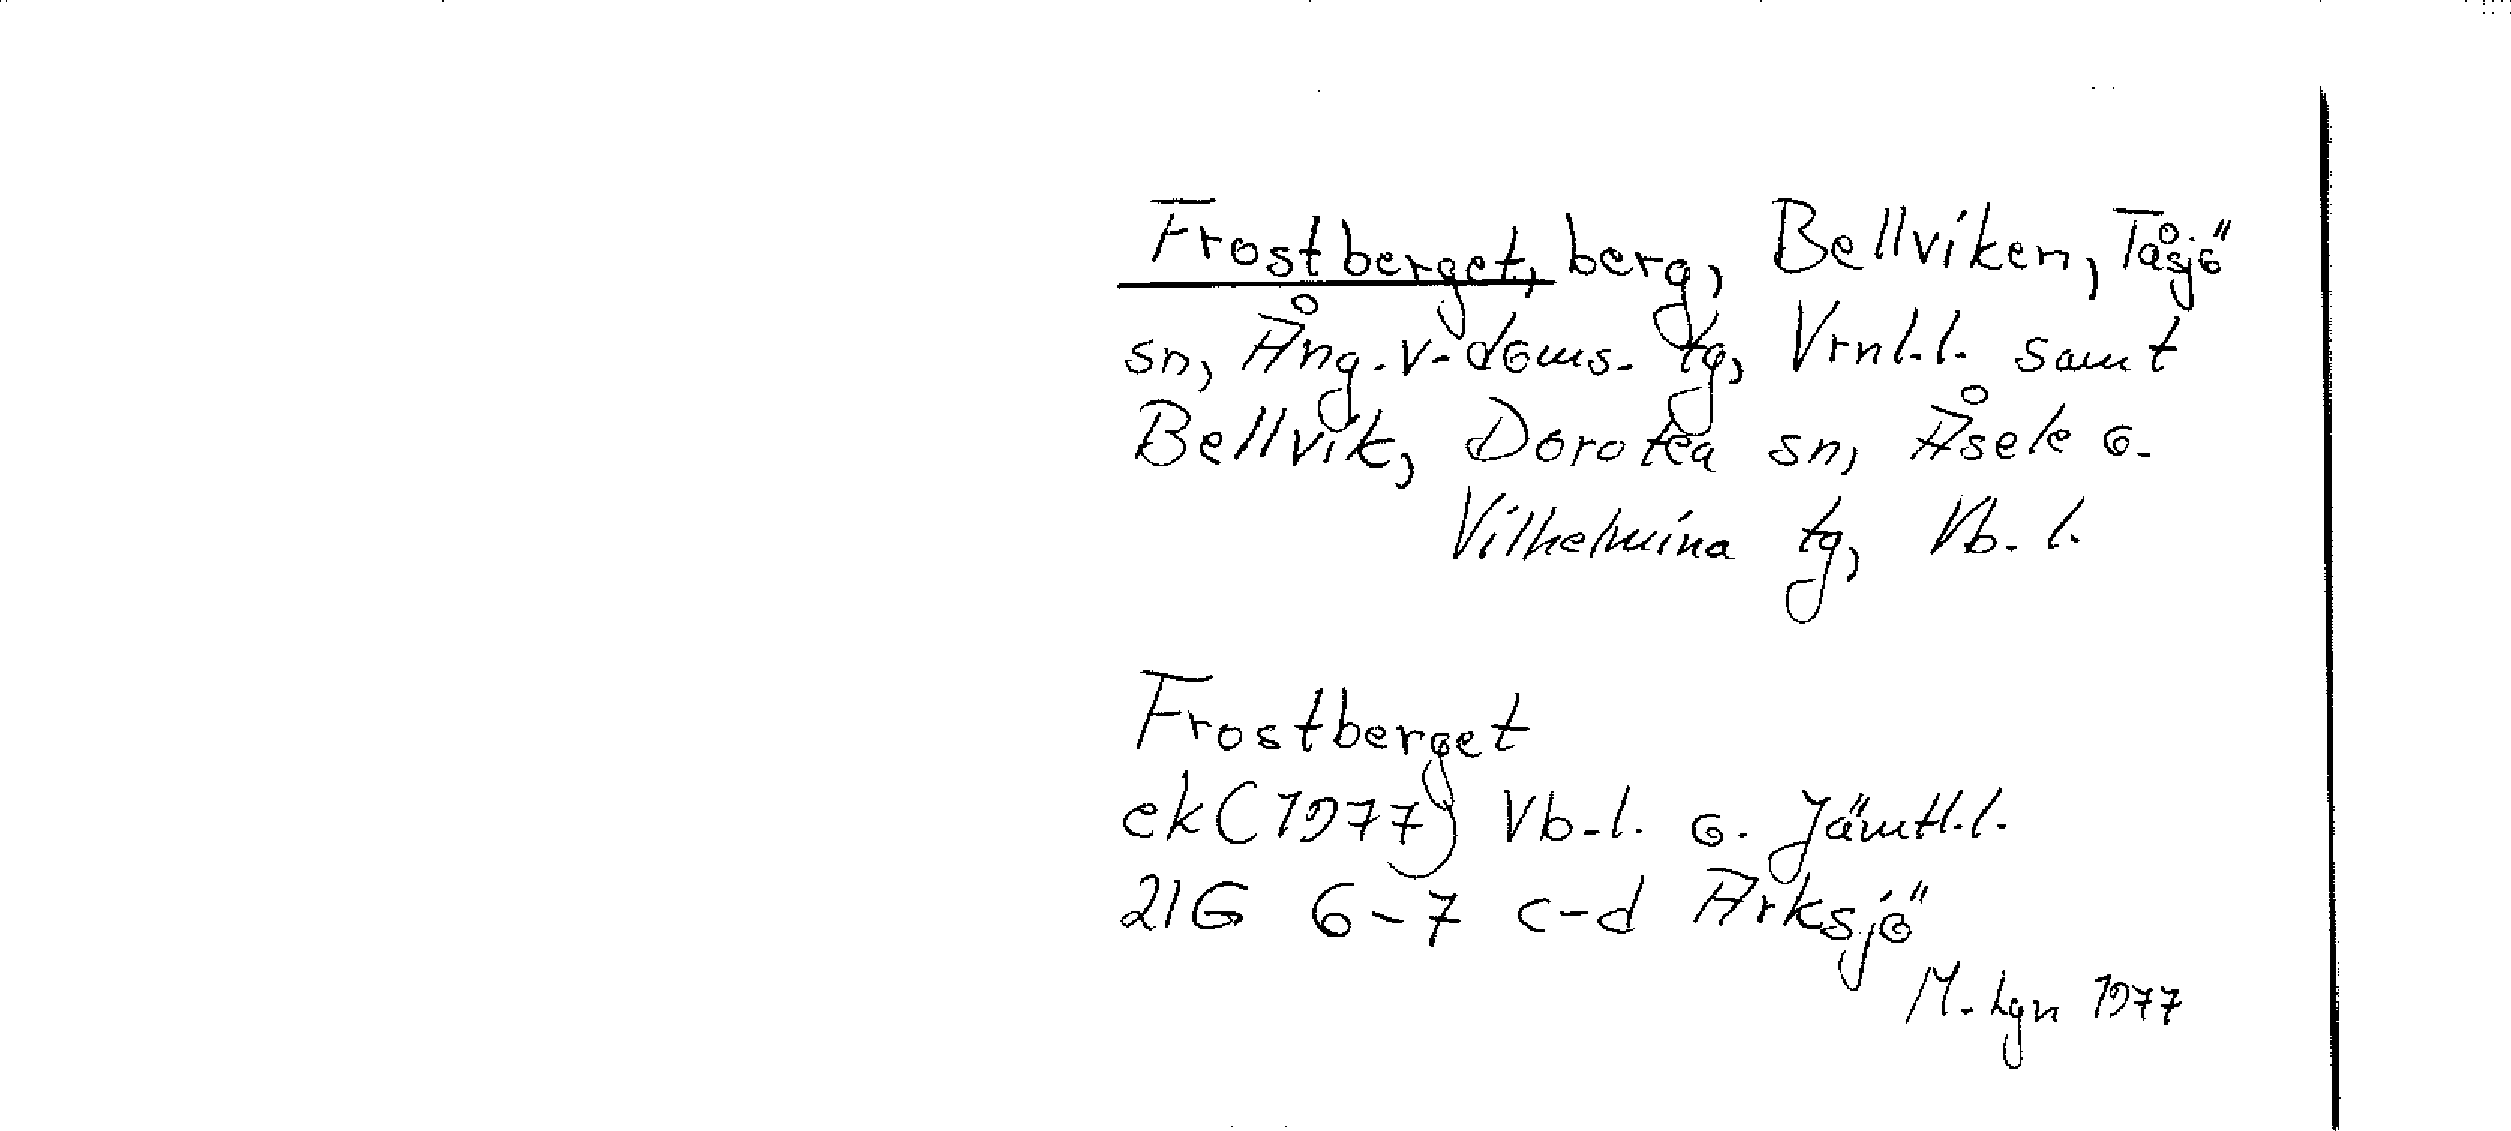 Frostberget, berg, Bellviken, Tåsjö
sn, Ång. v. doms. tg, Vrnl.l. samt
Bellvik, Dorotea sn, Åsele o.
Vilhelmina tg, Vb. l.
Frostberget
ek (1977) Vb. l. o. Jämtl.l.
21G 6-7 c-d Arksjö
M. Lgn 1977